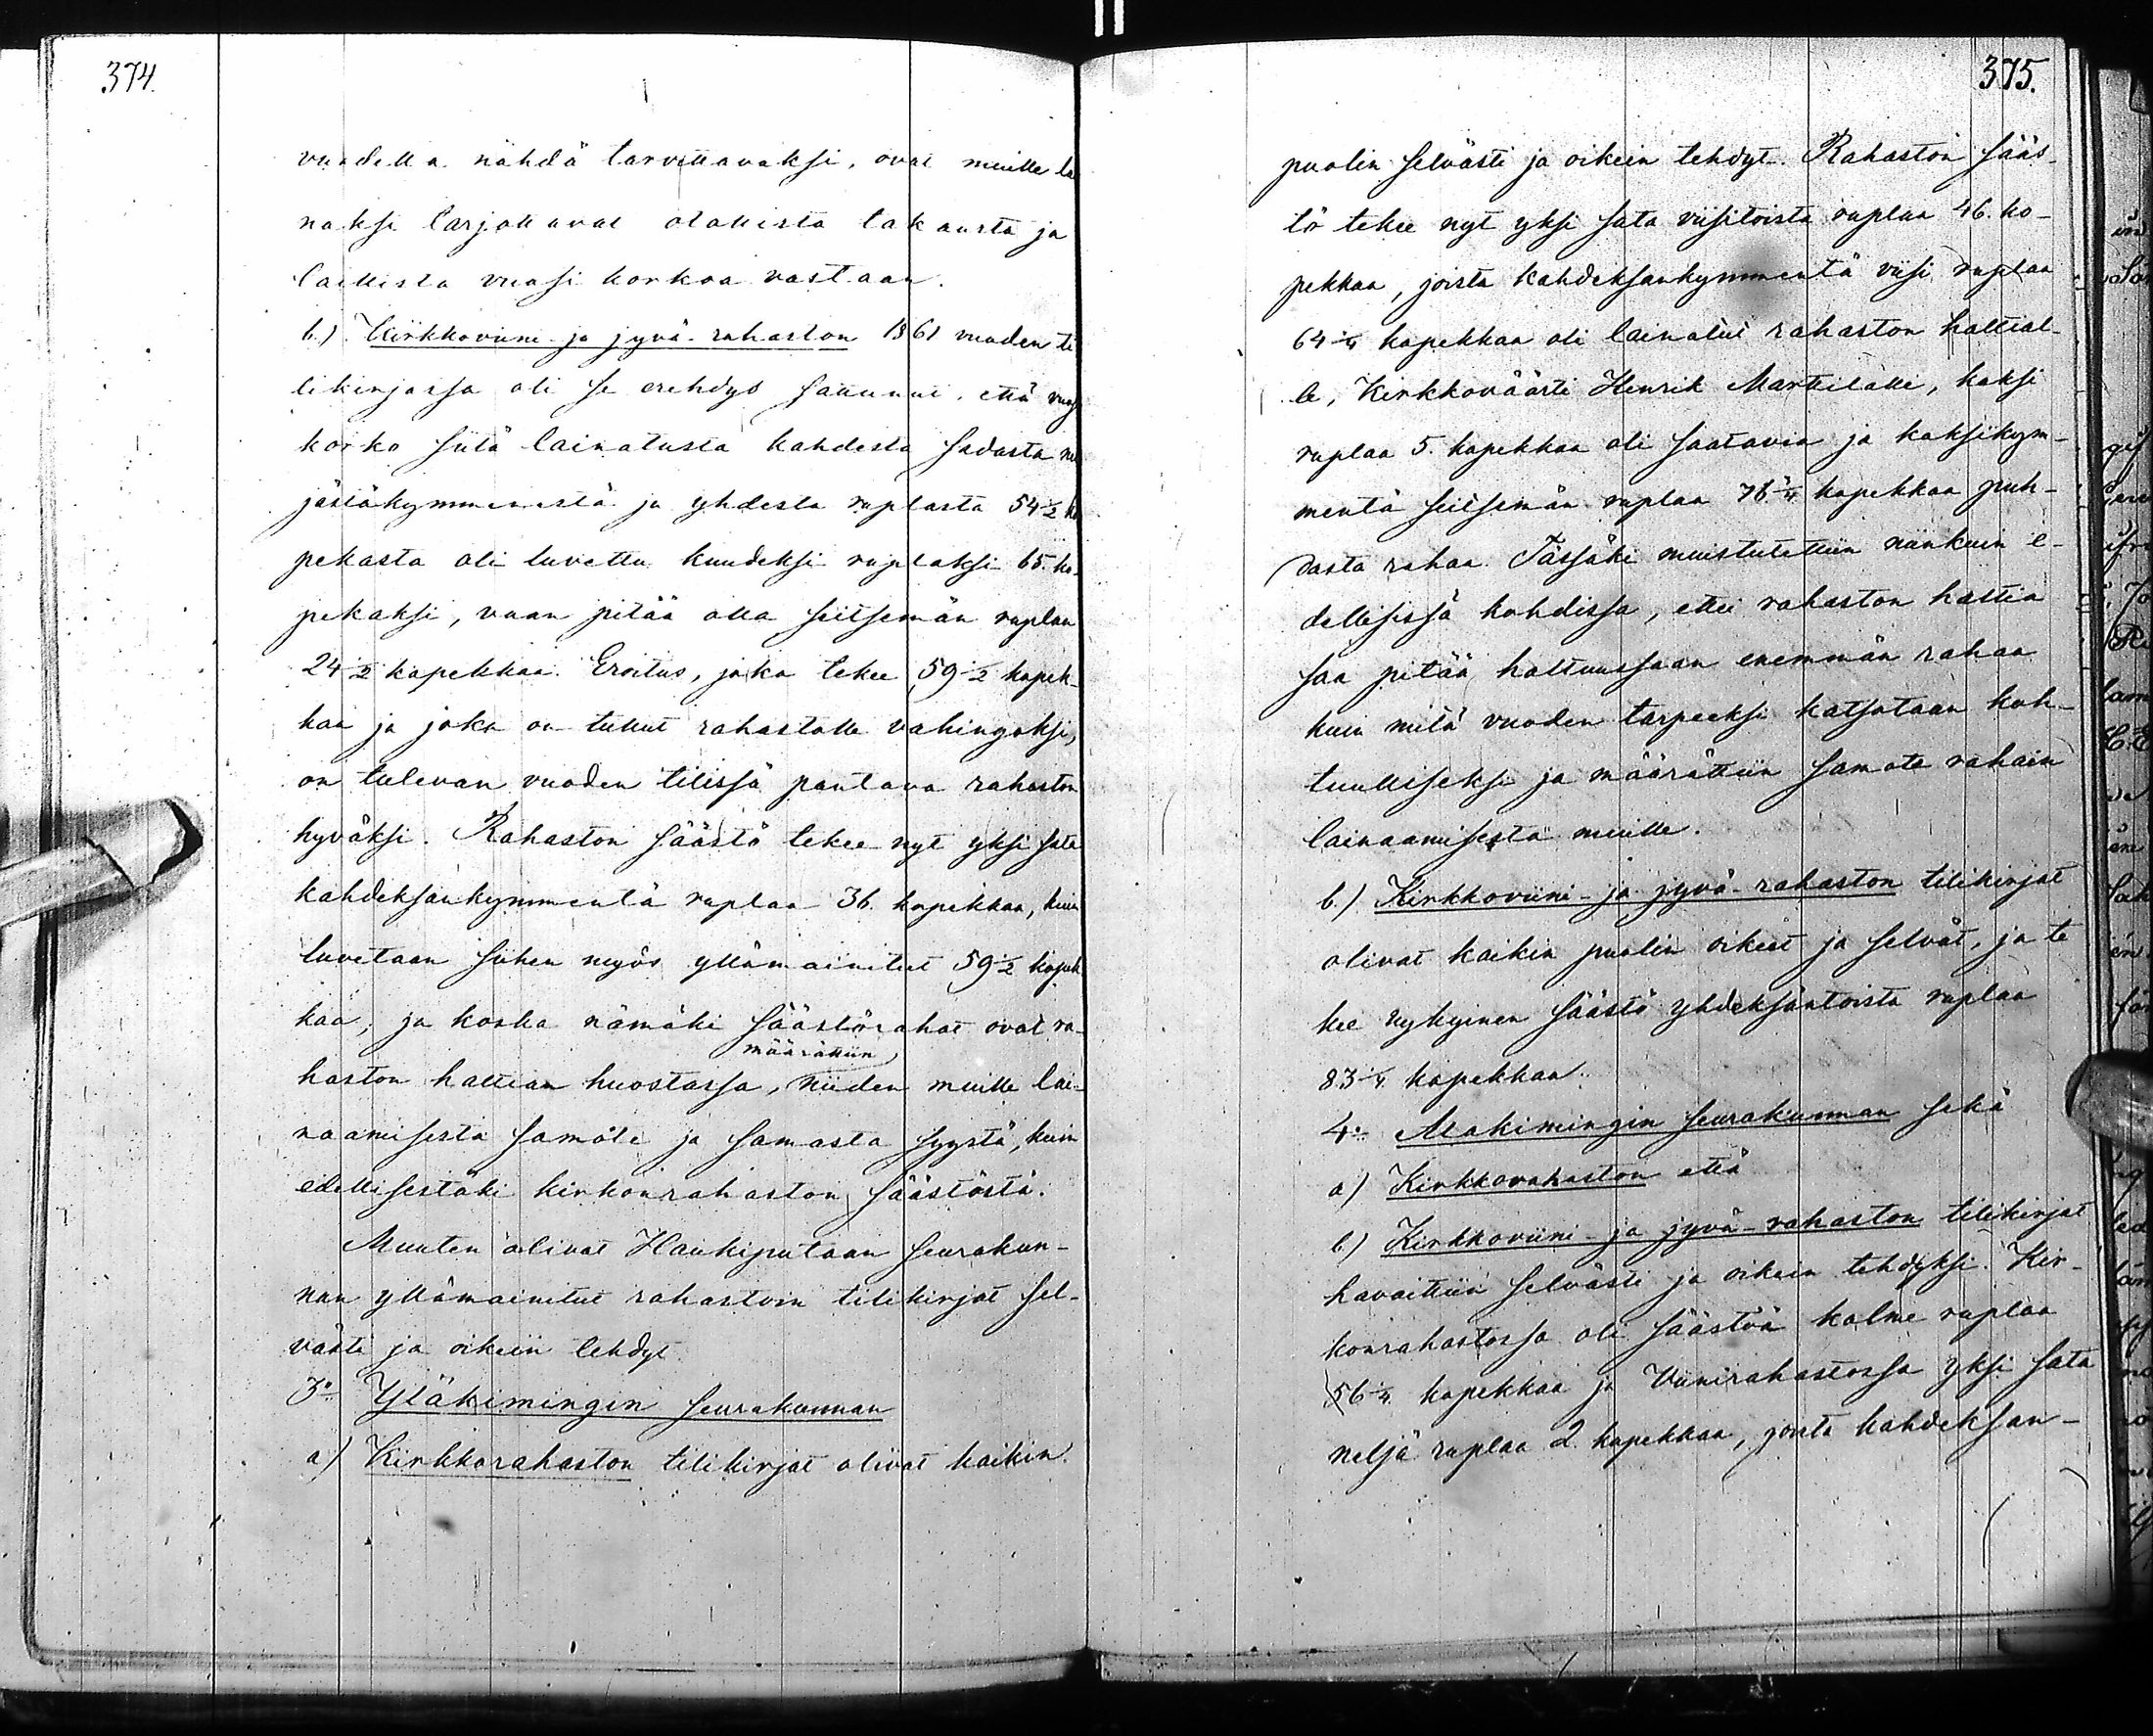 374.
vuodella nähdä tarvittavaksi, ovat muille lai
naksi tarjottavat otollista takausta ja
laillista vuosi korkoa vastaan.
b.) Kirkkoviini- ja jyvä-rahaston 1861 vuoden ti
likirjassa oli se erehdys sattunut, että vuosi
korko siitä lainatusta kahdesta sadasta nel
jästäkymmenestä ja yhdestä ruplasta 54 1/2 ko
pekasta oli luvettu kuudeksi ruplaksi 65. ko-
pekaksi, vaan pitää olla seitsemän ruplaa
24 1/2 kopekkaa. Eroitus, joka tekee 59 1/2 kopek-
kaa ja joka on tullut rahastolle vahingoksi,
on tulevan vuoden tilissä pantava rahaston
hyväksi. Rahaston säästö tekee nyt yksi sata
kahdeksankymmentä ruplaa 36. kopekkaa, kuin
luvetaan siihen myös yllämainitut 59 1/2 kopek
kaa, ja koska nämäki säästörahat ovat ra-
määrättiin
haston haltian huostassa, niiden muille lai-
naamisesta samote ja samasta syystä, kuin
edellisestäki kirkonrahaston säästöstä.
Muuten olivat Haukiputaan seurakun-
nan yllämainitut rahastoin tilikirjat sel-
västi ja oikein tehdyt.
3:o Yläkimingin seurakunnan
a) Kirkkorahaston tilikirjat olivat kaikin
375.
puolin selvästi ja oikein tehdyt. Rahaston sääs-
tö tekee nyt yksi sata viisitoista ruplaa 46. ko-
pekkaa, joista kahdeksankymmentä viisi ruplaa
64 1/4 kopekkaa oli lainatut rahaston haltial-
le, Kirkkoväärti Henrik Marttilalle, kaksi
ruplaa 5. kopekkaa oli saatavia ja kaksikym-
mentä seitsemän ruplaa 76 3/4 kopekkaa puh-
dasta rahaa. Tässäki muistutettiin niinkuin e-
dellisissä kohdissa, ettei rahaston haltia
saa pitää haltuunsaan enemmän rahaa
kuin mitä vuoden tarpeeksi katsotaan koh-
tuulliseksi ja määrättiin samote rahain
lainaamisesta muille.
b.) Kirkkoviini- ja jyvä-rahaston tilikirjat
olivat kaikin puolin oikeat ja selvät, ja te
kee nykyinen säästö yhdeksäntoista ruplaa
83 1/4 kopekkaa.
4:o Alakimingin seurakunnan sekä
a) Kirkkorahaston että
b.) Kirkkoviini- ja jyvä-rahaston tilikirjat
havaittiin selvästi ja oikein tehdyksi. Kir-
konrahastossa oli säästöä kolme ruplaa
56 1/4 kopekkaa ja Viinirahastossa yksi sata
neljä ruplaa 2 kopekkaa, joista kahdeksan-